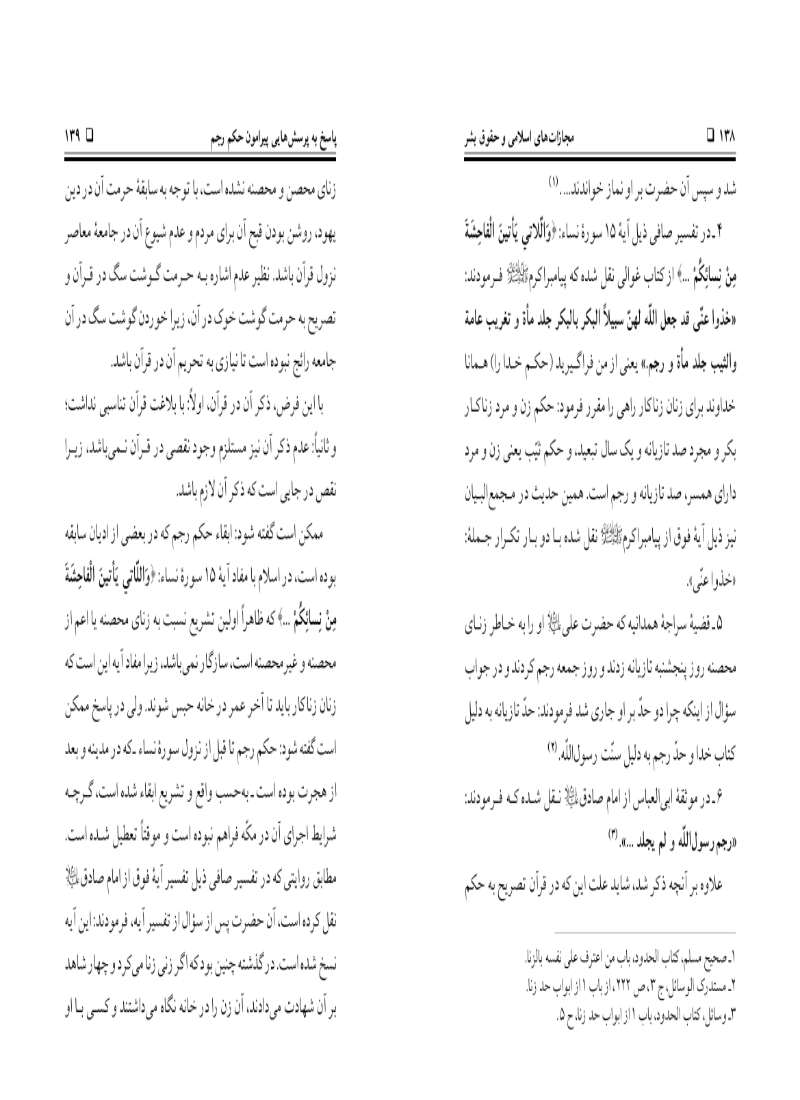 ۱۳۸ ❑ مجازات‌های اسلامی و حقوق بشر
شد و سپس آن حضرت بر او نماز خواندند....(۱)
۴ـ در تفسیر صافی ذیل آیهٔ ۱۵ سورهٔ نساء: ﴿وَالّلاتي يَأتينَ الْفاحِشَةَ
مِنْ نِسائِكُمْ ...﴾ از کتاب غوالی نقل شده که پیامبراکرمﷺ فـرمودند:
«خذوا عنّی قد جعل اللّه لهنّ سبیلاً البکر بالبکر جلد مأة و تغریب عامة
والثیب جلد مأة و رجم.» یعنی از من فراگـیرید (حکـم خـدا را) هـمانا
خداوند برای زنان زناکار راهی را مقرر فرمود: حکم زن و مرد زناکـار
بکر و مجرد صد تازیانه و یک سال تبعید، و حکم ثیّب یعنی زن و مرد
دارای همسر، صد تازیانه و رجم است. همین حدیث در مـجمع‌البـیان
نیز ذیل آیهٔ فوق از پیامبراکرمﷺ نقل شده بـا دو بـار تکـرار جـملهٔ:
«خذوا عنّی».
۵ـ قضیهٔ سراجهٔ همدانیه که حضرت علی؏ او را به خـاطر زنـای
محصنه روز پنجشنبه تازیانه زدند و روز جمعه رجم کردند و در جواب
سؤال از اینکه چرا دو حدّ بر او جاری شد فرمودند: حدّ تازیانه به دلیل
کتاب خدا و حدّ رجم به دلیل سنّت رسول‌اللّه.(۲)
۶ـ در موثقهٔ ابی‌العباس از امام صادق؏ نـقل شـده کـه فـرمودند:
«رجم رسول‌اللّه و لم یجلد ...».(۳)
علاوه بر آنچه ذکر شد، شاید علت این که در قرآن تصریح به حکم
۱ـ صحیح مسلم، کتاب الحدود، باب من اعترف علی نفسه بالزنا.
۲ـ مستدرک الوسائل، ج ۳، ص ۲۲۲، از باب ۱ از ابواب حد زنا.
۳ـ وسائل، کتاب الحدود، باب ۱ از ابواب حد زنا، ح ۵.
پاسخ به پرسش‌هایی پیرامون حکم رجم ❑ ۱۳۹
زنای محصن و محصنه نشده است، با توجه به سابقهٔ حرمت آن در دین
یهود، روشن بودن قبح آن برای مردم و عدم شیوع آن در جامعهٔ معاصر
نزول قرآن باشد. نظیر عدم اشاره بـه حـرمت گـوشت سگ در قـرآن و
تصریح به حرمت گوشت خوک در آن، زیرا خوردن گوشت سگ در آن
جامعه رائج نبوده است تا نیازی به تحریم آن در قرآن باشد.
با این فرض، ذکر آن در قرآن، اولاً: با بلاغت قرآن تناسبی نداشت؛
و ثانیاً: عدم ذکر آن نیز مستلزم وجود نقصی در قـرآن نـمی‌باشد، زیـرا
نقص در جایی است که ذکر آن لازم باشد.
ممکن است گفته شود: ابقاء حکم رجم که در بعضی از ادیان سابقه
بوده است، در اسلام با مفاد آیهٔ ۱۵ سورهٔ نساء: ﴿وَاللّاتي يَأتينَ الْفاحِشَةَ
مِنْ نِسائِكُمْ ...﴾ که ظاهراً اولین تشریع نسبت به زنای محصنه یا اعم از
محصنه و غیرمحصنه است، سازگار نمی‌باشد، زیرا مفاد آیه این است که
زنان زناکار باید تا آخر عمر در خانه حبس شوند. ولی در پاسخ ممکن
است گفته شود: حکم رجم تا قبل از نزول سورهٔ نساء ـ که در مدینه و بعد
از هجرت بوده است ـ به‌حسب واقع و تشریع ابقاء شده است، گـرچـه
شرایط اجرای آن در مکّه فراهم نبوده است و موقتاً تعطیل شـده است.
مطابق روایتی که در تفسیر صافی ذیل تفسیر آیهٔ فوق از امام صادق؏
نقل کرده است، آن حضرت پس از سؤال از تفسیر آیه، فرمودند: این آیه
نسخ شده است. در گذشته چنین بود که اگر زنی زنا می‌کرد و چهار شاهد
بر آن شهادت می‌دادند، آن زن را در خانه نگاه می‌داشتند و کسـی بـا او